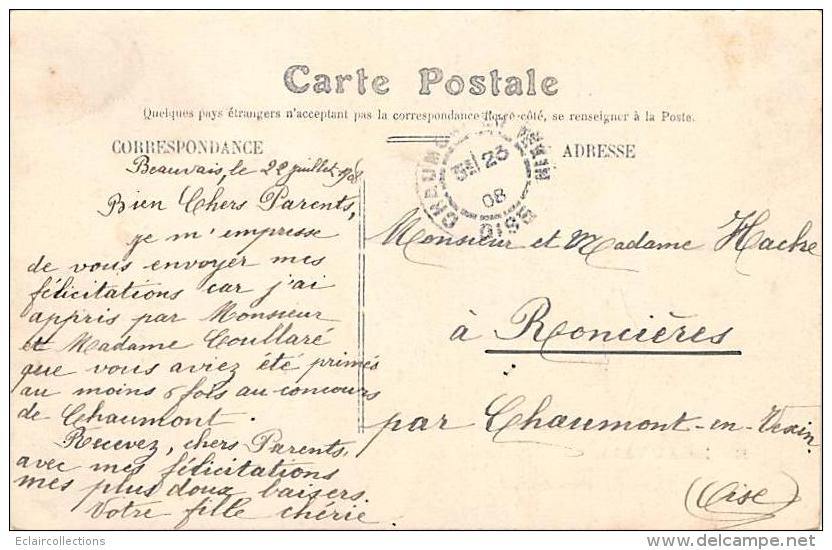 Carte Postale
Quelques pays étrangers n'acceptant pas la correspondance de ce côté, se renseigner à la Poste.
CORRESPONDANCE
Beauvais, le 22 juillet 1908
Bien Chers Parents,
je m'empresse
de vous envoyer mes
félicitations car j'ai
appris par Monsieur
et Madame Coullaré
que vous aviez été primés
au moins 6 fois au concours
de Chaumont.
Recevez, chers Parents,
avec mes félicitations
mes plus doux baisers.
Votre fille chérie.
ADRESSE
23
08
OISE
Monsieur et Madame
à Roncières
par Chaumont-en-Vexin.
(Oise)
Eclaircollections
www.delcampe.net